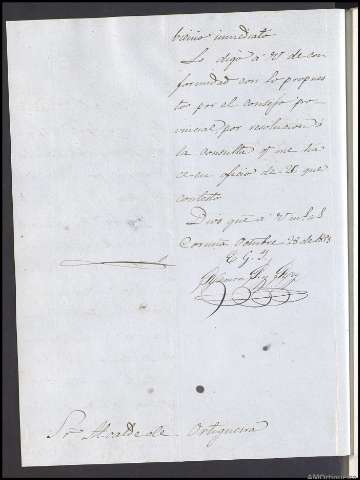 bierno inmediato
Lo digo á V de con
formidad con lo propues
to por el consejo pro
vincial por resolucion á
la consulta q me ha
ce en oficio de 21 que
contesto
Dios gue á V m s a s
Coruña Octubre 28 de
E G I
Sr. Alcalde de Ortigueira
AMOrtigueira